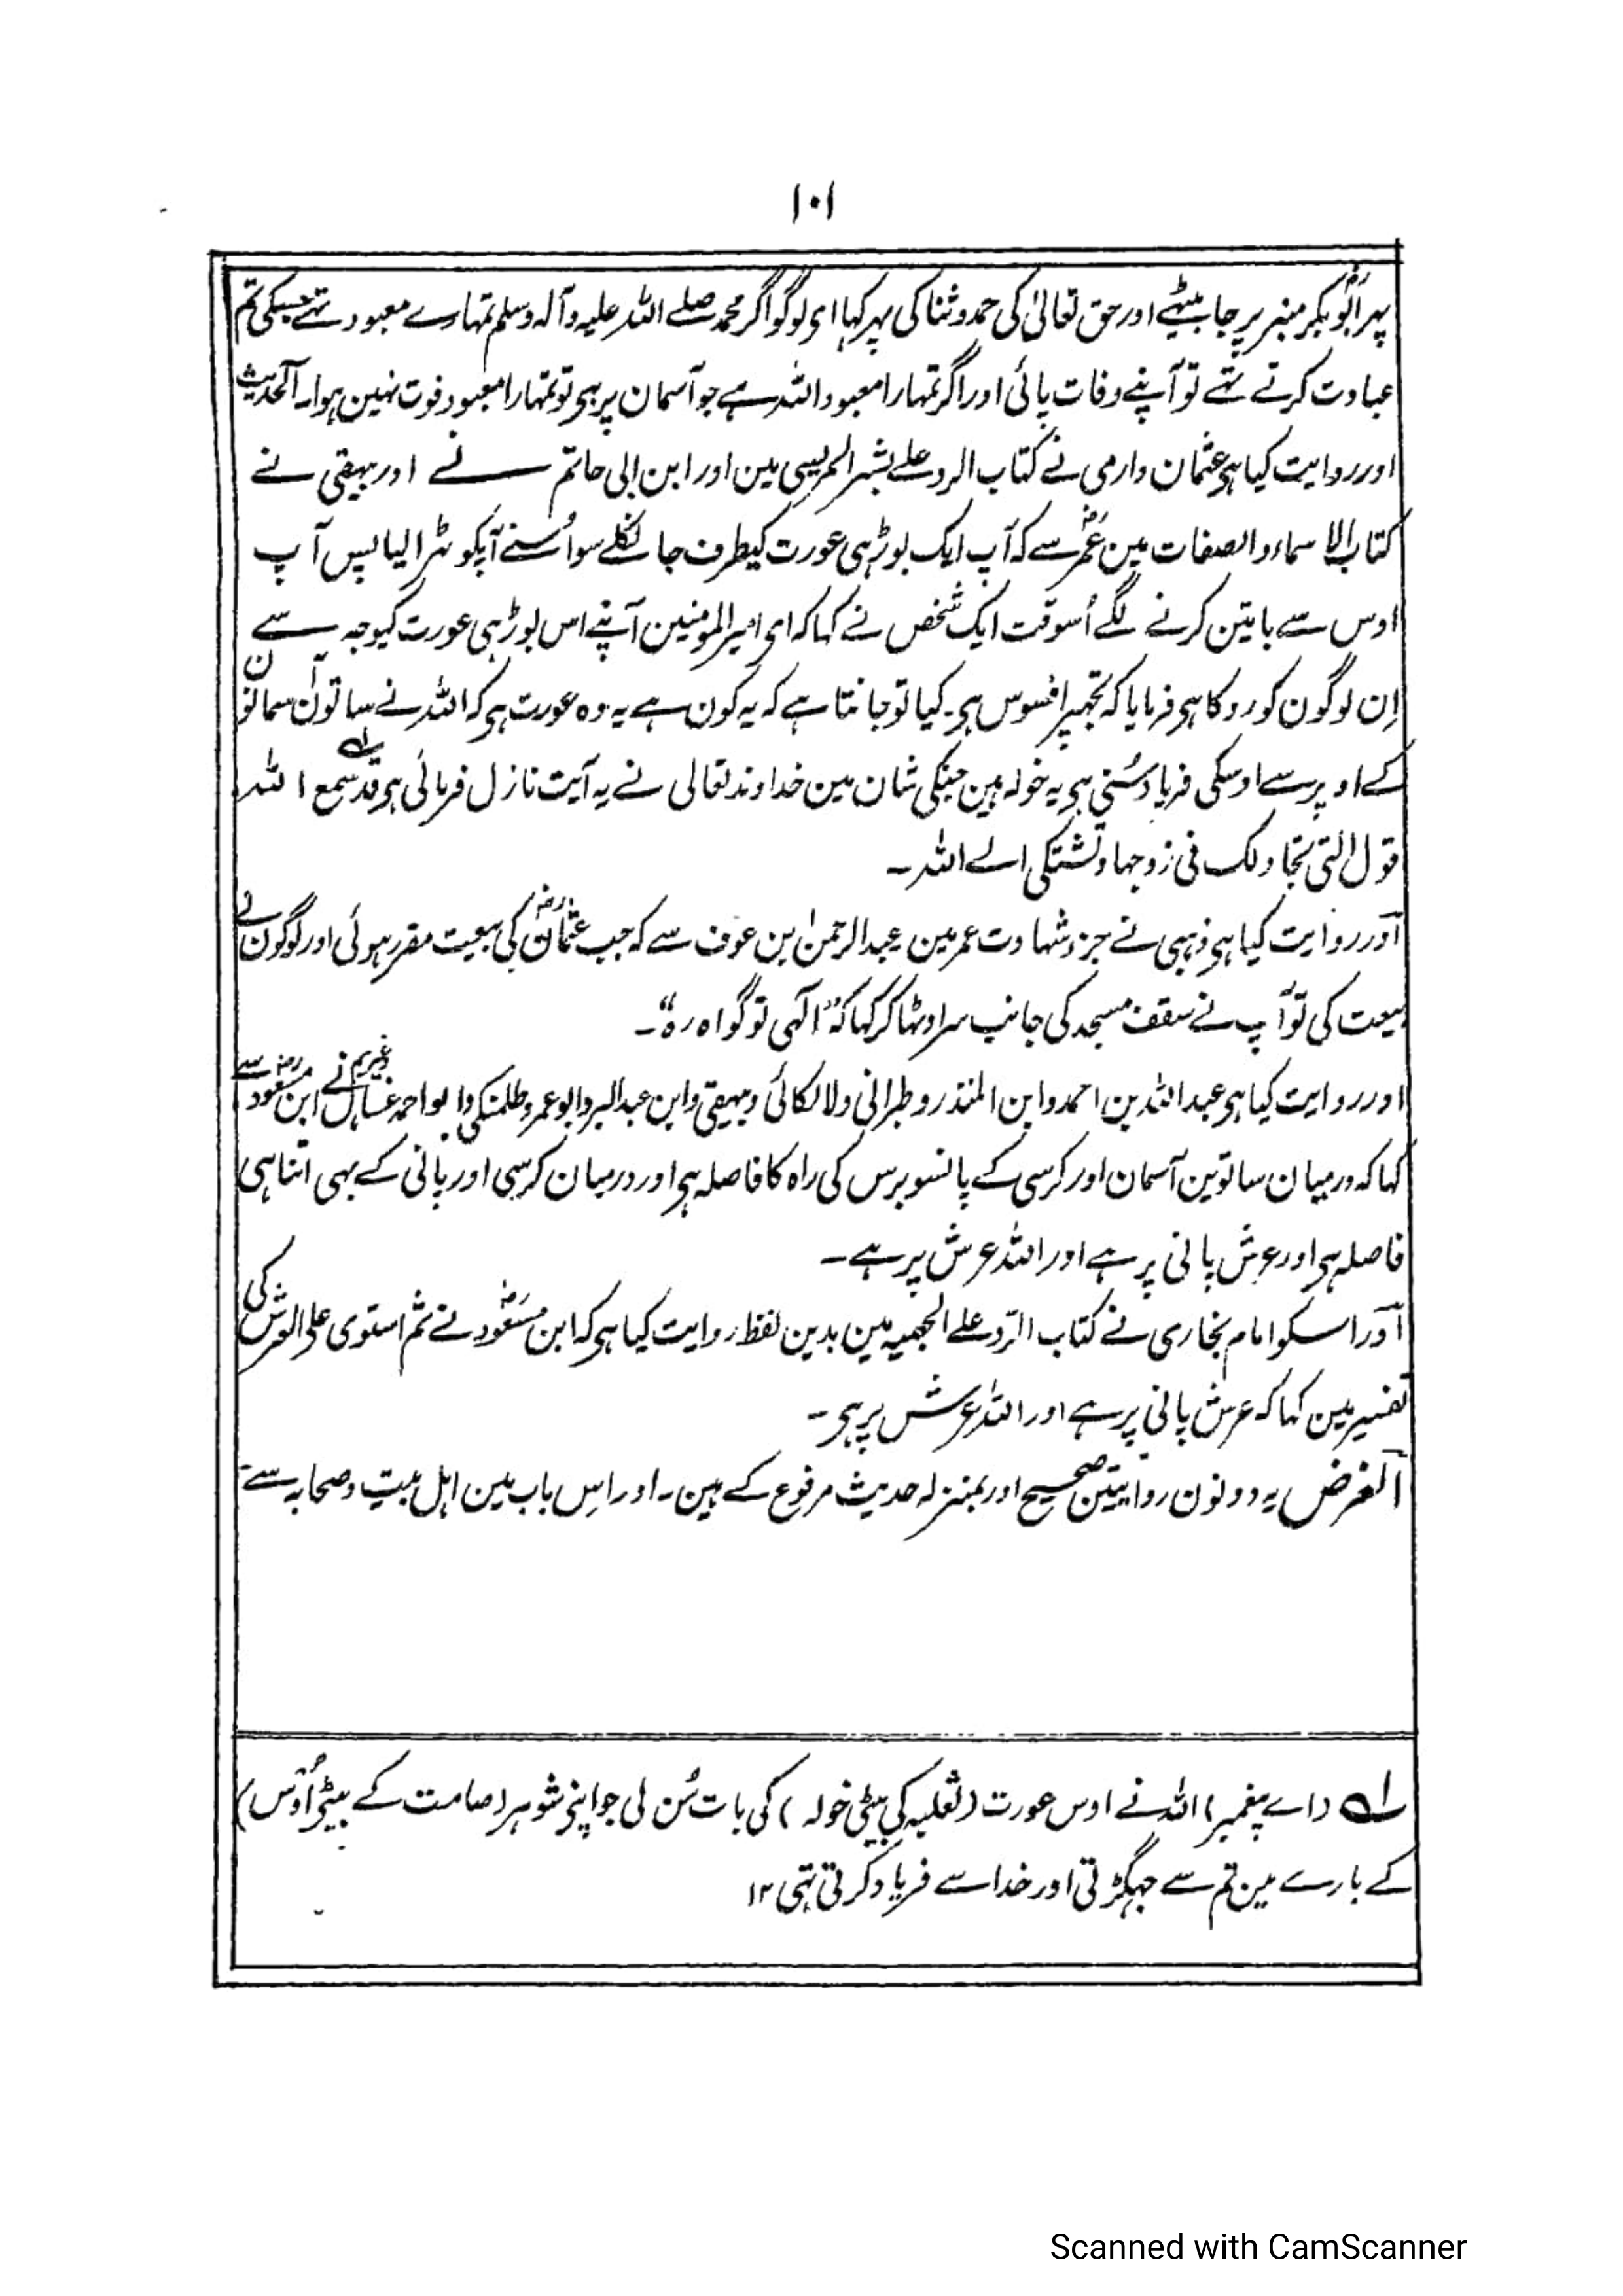 ۱۰۱
پہر ابوبکرؓ منبر پر جا بیٹھے اور حق تعالیٰ کی حمد و ثنا کی پہر کہا ای لوگو اگر محمد صلے اللہ علیہ وآلہ وسلم تمہارے معبود تہے جسکی تم
عبادت کرتے تہے تو آپنے وفات پائی اور اگر تمہارا معبود اللہ ہے جو آسمان پر ہی تو تمہارا معبود فوت نہین ہوا۔ الحدیث
اور روایت کیا ہی عثمان دارمی نے کتاب الرد علے بشر المریسی مین اور ابن ابی حاتم نے اور بیہقی نے
کتاب الاسماء والصفات مین عمرؓ سے کہ آپ ایک بوڑہی عورت کیطرف جا نکلے سو اُسنے آپکو ٹہرا لیا پس آپ
اوس سے باتین کرنے لگے اُسوقت ایک شخص نے کہا کہ ای امیر المومنین آپنے اس بوڑہی عورت کیوجہ سے
اِن لوگون کو روکا ہی فرمایا کہ تجہپر افسوس ہی۔ کیا تو جانتا ہے کہ یہ کون ہے یہ وہ عورت ہی کہ اللہ نے ساتون آسمانون
کے اوپر سے اوسکی فریاد سُنی ہی یہ خولہ ہین جنکی شان مین خداوند تعالی نے یہ آیت نازل فرمائی ہی قد سمع اللہ ؎۱
قول التی تجادلک فی زوجہا وتشتکی الے اللہ۔
اور روایت کیا ہی ذہبی نے جزء شہادت عمر مین عبدالرحمٰن بن عوف سے کہ جب عثمانؓ کی بیعت مقرر ہوئی اور لوگون نے
بیعت کی تو آپ نے سقف مسجد کی جانب سر اوٹہا کر کہا کہ "الہی تو گواہ رہ"۔
اور روایت کیا ہی عبداللہ بن احمد وابن المنذر وطبرانی ولالکائی وبیہقی وابن عبدالبر وابوعمر وطلمنکی وابو احمد عسال وغیرہم نے ابن مسعودؓ سے
کہا کہ درمیان ساتوین آسمان اور کرسی کے پانسو برس کی راہ کا فاصلہ ہی اور درمیان کرسی اور پانی کے بہی اتنا ہی
فاصلہ ہی اور عرش پانی پر ہے اور اللہ عرش پر ہے۔
اور اسکو امام بخاری نے کتاب الرد علے الجہمیہ مین بدین لفظ روایت کیا ہی کہ ابن مسعودؓ نے ثم استوی علی العرش کی
تفسیر مین کہا کہ عرش پانی پر ہے اور اللہ عرش پر ہی۔
الغرض یہ دونون روایتین صحیح اور بمنزلہ حدیث مرفوع کے ہین۔ اور اِس باب مین اہل بیت وصحابہ سے
؎۱ (اے پیغمبر) اللہ نے اوس عورت (ثعلبہ کی بیٹی خولہ) کی بات سُن لی جو اپنی شوہر (صامت کے بیٹے اُوَس)
کے بارے مین تم سے جہگڑتی اور خدا سے فریاد کرتی تہی ۱۲
Scanned with CamScanner